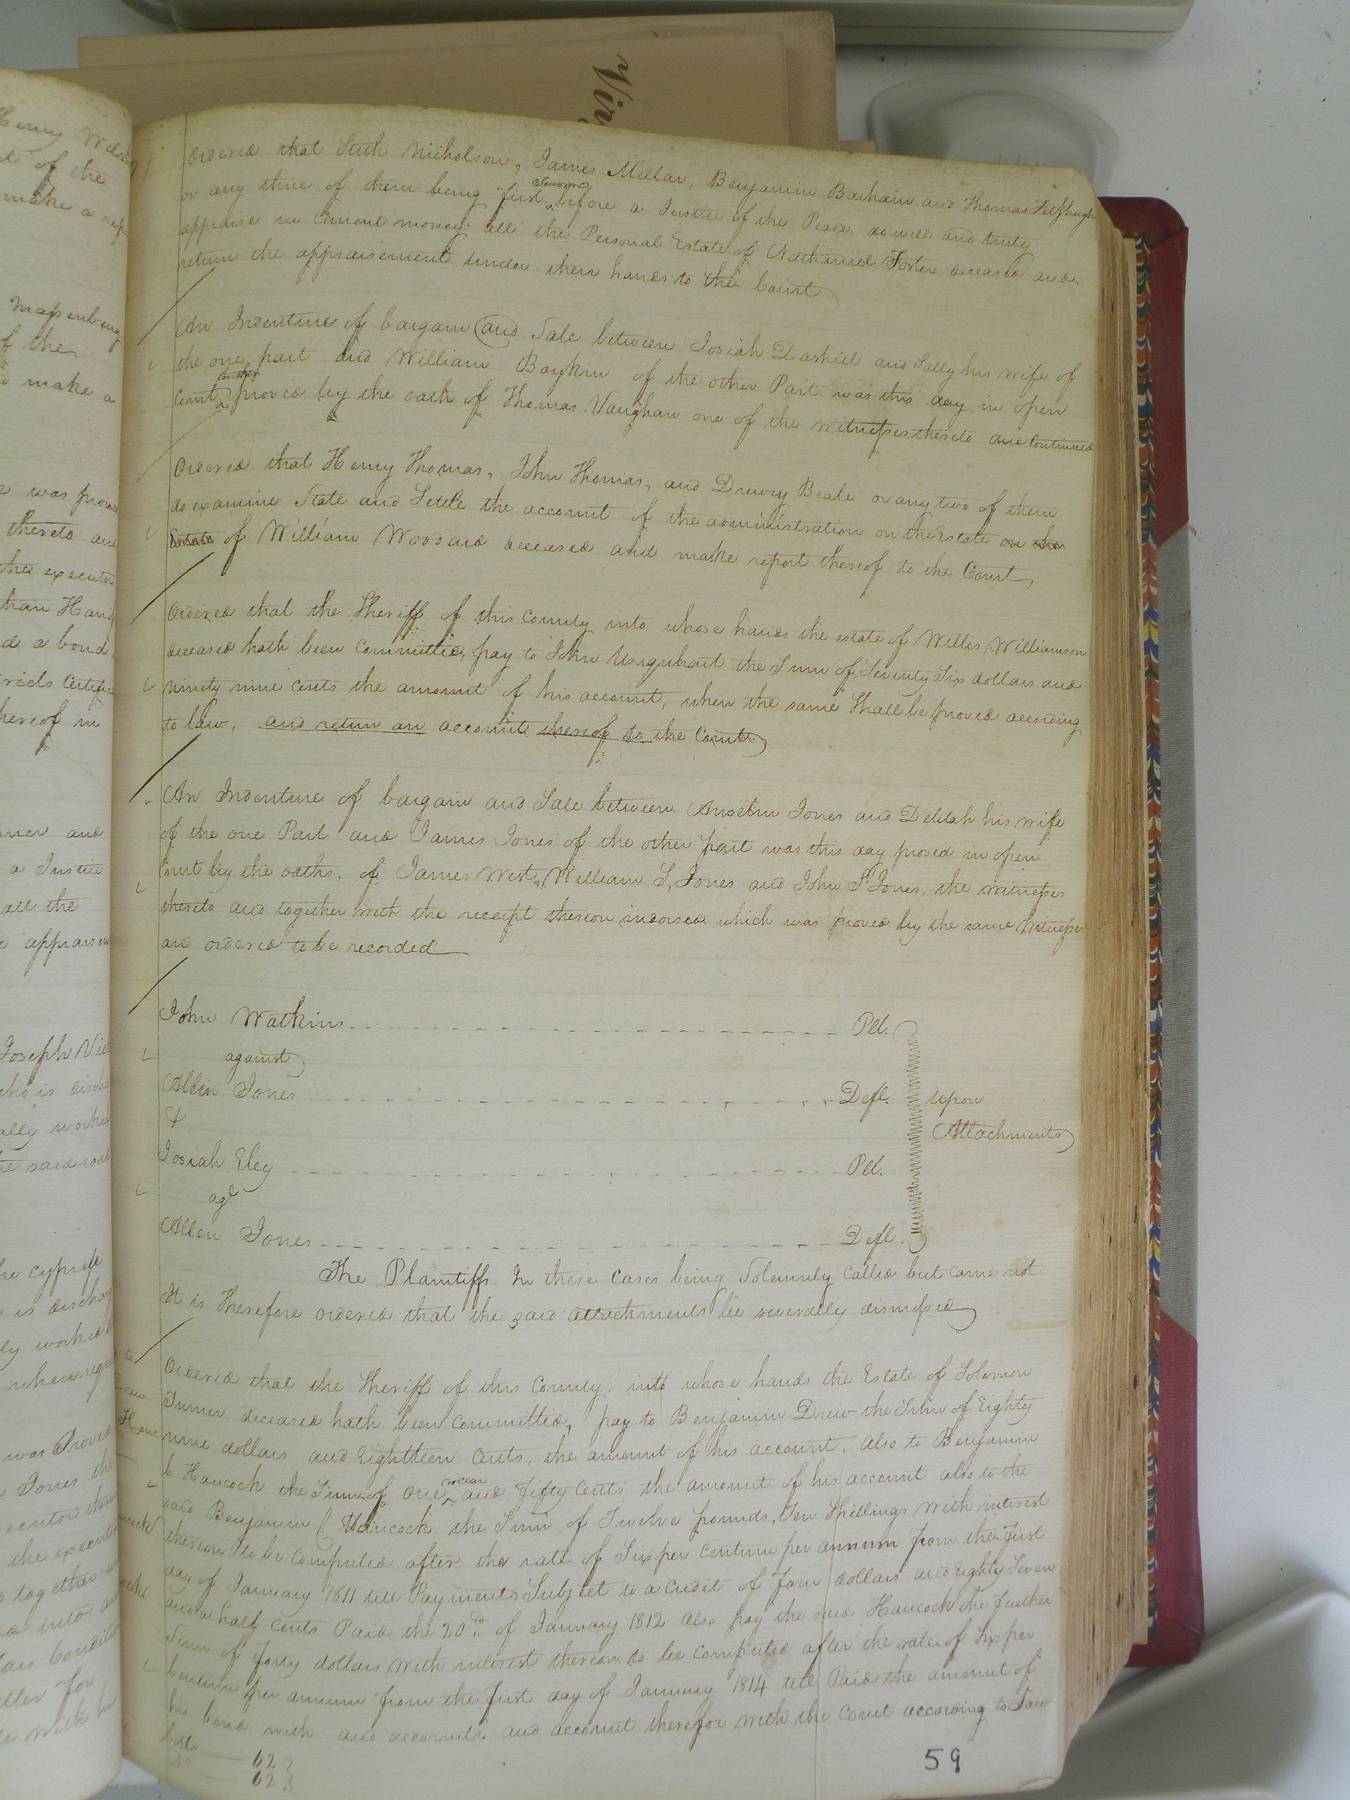 Vir
Ordered that Seth Nicholson, James Millar, Benjamin Barham and Thomas Fitzhugh
or any three of them being first sworn before a Justice of the Peace, do well and truly
appraise in Current money all the Personal Estate of Nathaniel Foster deceased and
return the appraisement under their hands to the Court
An Indenture of bargain and Sale between Josiah Dashiel and Sally his wife of
the one part and William Boykin of the other Part was this day in open
Court further proved by the oath of Thomas Vaughan one of the witnesses thereto and Continued
Ordered that Henry Thomas, John Thomas, and Drewry Beale or any two of them
do examine State and Settle the account of the administration on the Estate on the
Estate of William Woodard deceased and make report thereof to the Court
Ordered that the Sheriff of this County into whose hands the estate of Willis Williamson
deceased hath been Committed, pay to John Urquhart the Sum of Seventy Six dollars and
Ninety nine Cents the amount of his account, when the same Shall be proved according
to law, and return an account thereof to the Court
An Indenture of bargain and Sale between Anselm Jones and Delilah his wife
of the one Part and James Jones of the other part was this day proved in open
Court by the oaths, of James West, William S, Jones and John S Jones, the witnesses
thereto and together with the receipt thereon indorsed which was proved by the same Witnesses
are ordered to be recorded
John Watkins Plt.
against
Allen Jones Deft. upon
&
Attachments
Josiah Eley Plt.
agt
Allen Jones Deft.
The Plaintiffs In these Cases being Solemnly Called but came not
It is therefore ordered that the said attachments be severally dismissed
Ordered that the Sheriff of this County, into whose hands the Estate of Solomon
Turner deceased hath been Committed, pay to Benjamin Drew the Sum of Eighty
nine dollars and Eighteen Cents, the amount of his account, also to Benjamin
C Hancock the Sum of one dollar and Fifty Cents the amount of his account also to the
said Benjamin C Hancock the Sum of Twelve pounds, Ten Shillings with interest
thereon to be Computed after the rate of Six per Centum per annum from the First
day of January 1811 till Payment Subject to a Credit of Four dollars and Eighty Seven
and a half Cents Paid the 20th of January 1812 also pay the said Hancock the Further
Sum of Forty dollars with interest thereon to be Computed after the rate of Six per
Centum per annum from the first day of January 1814 till Paid the amount of
his bond with and accounts. and account therefor with the Court according to Law
622
623
59